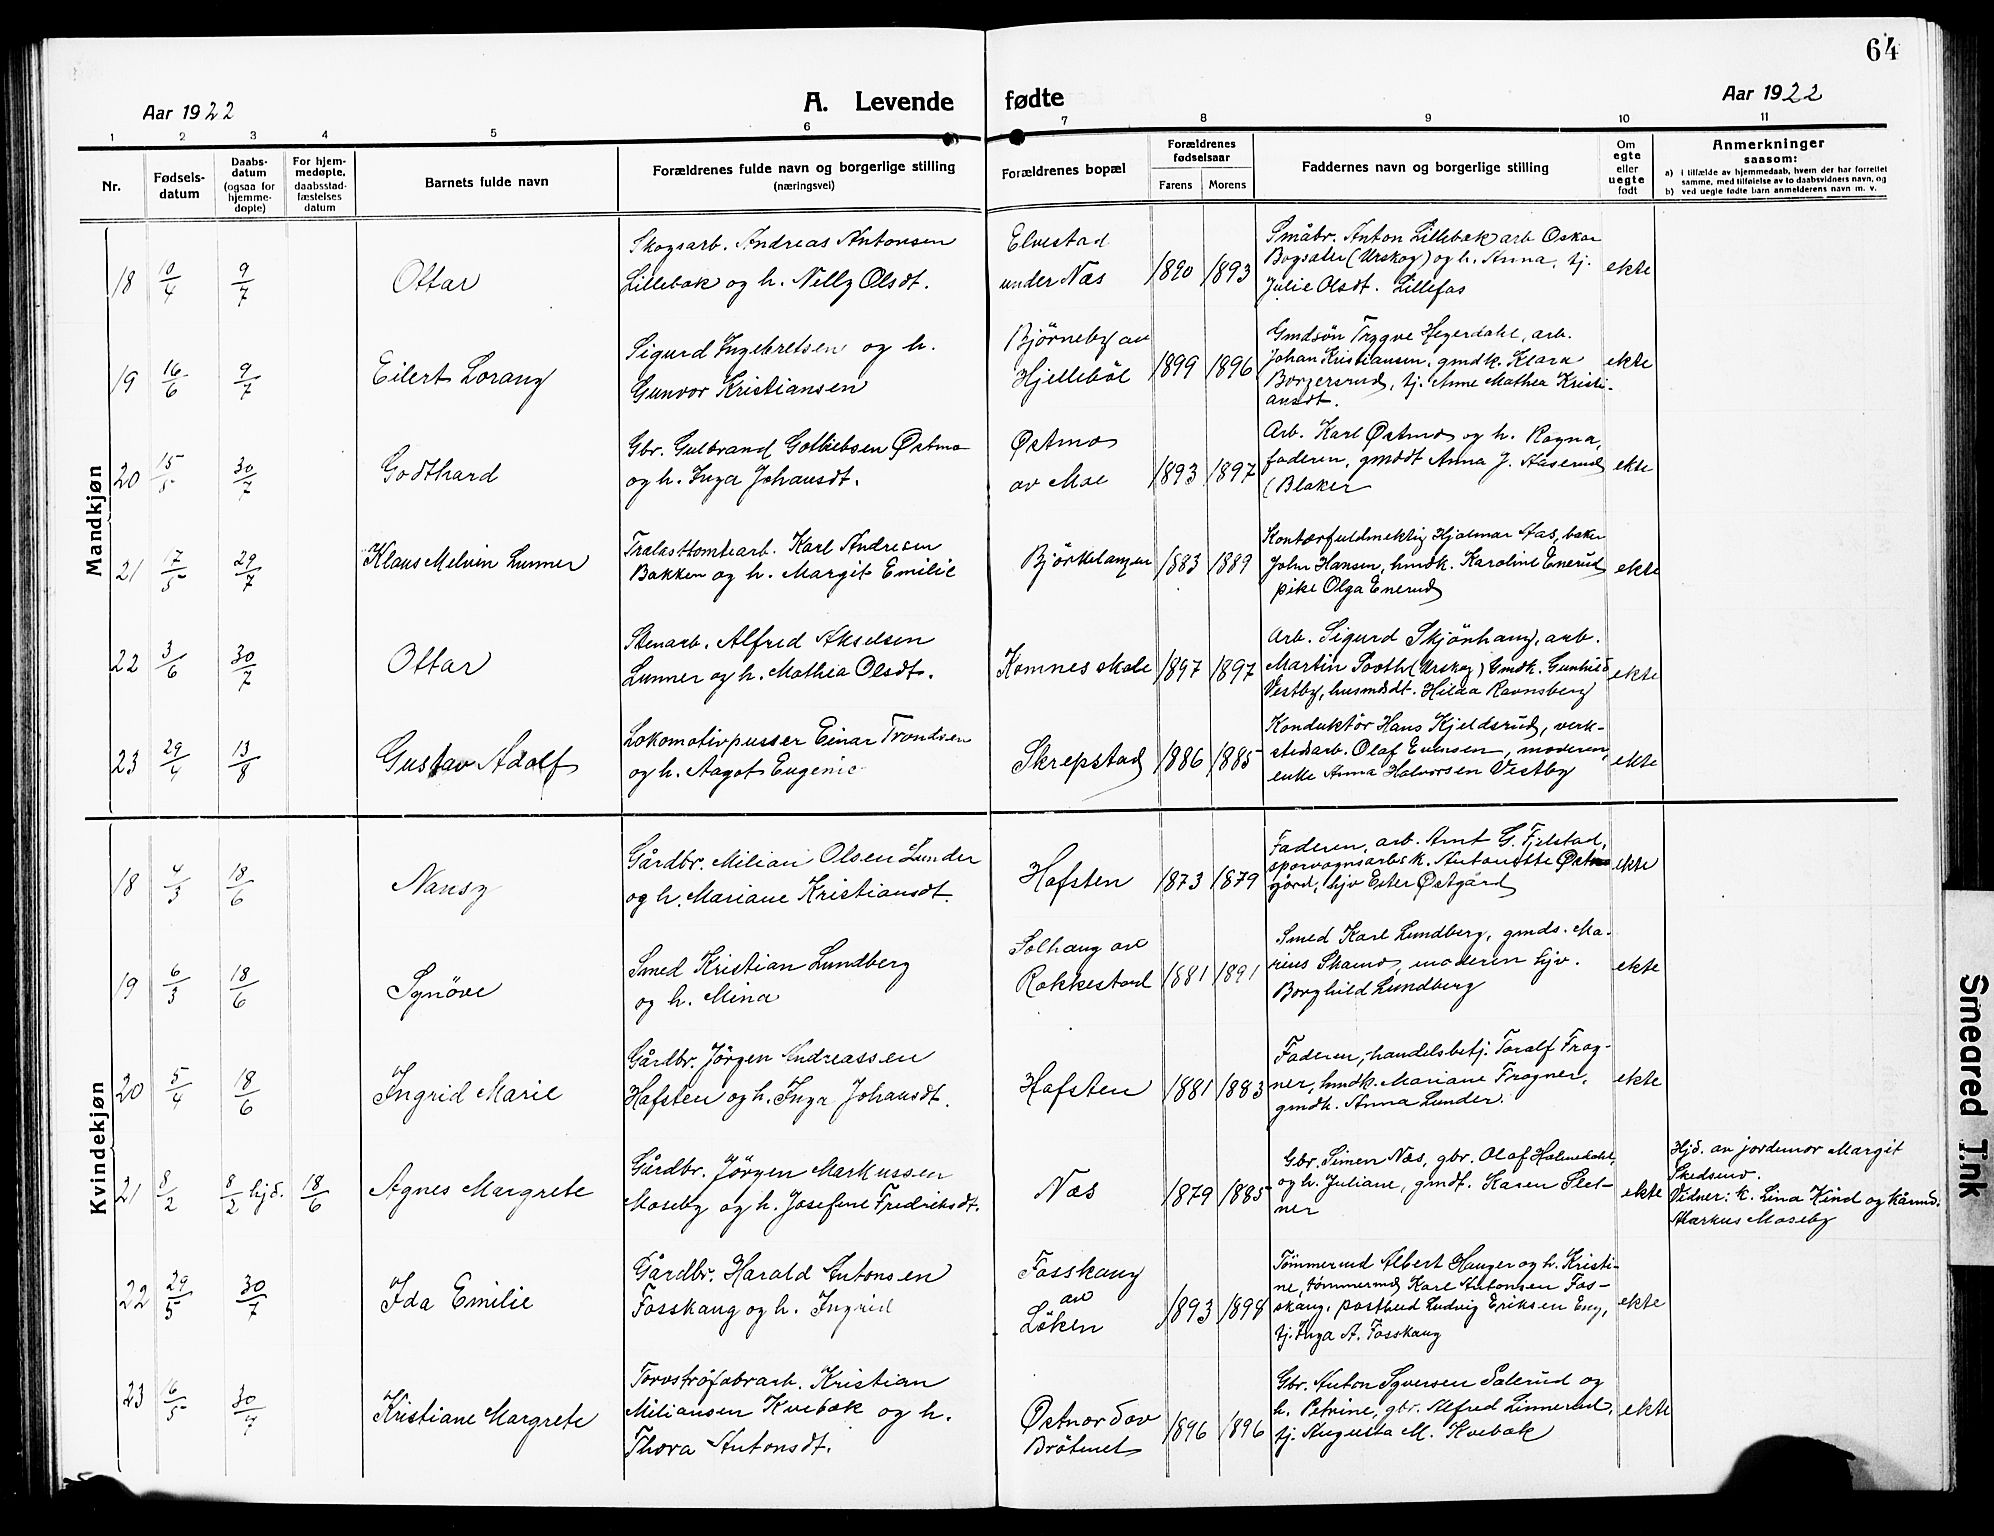 64
Aar 1922
A. Levende fødte
Aar 1922
1 2 3 4 5 6 7 8 9 10 11
Nr.
Fødsels-
datum
Daabs-
datum
(ogsaa for
hjemme-
døpte)
For hjem-
medøpte,
daabsstad-
fæstelses
datum
Barnets fulde navn
Forældrenes fulde navn og borgerlige stilling
(næringsvei)
Forældrenes bopæl
Forældrenes
fødselsaar
Farens Morens
Faddernes navn og borgerlige stilling
Om
egte
eller
uegte
født
Anmerkninger
saasom:
a) i tilfælde av hjemmedaab, hvem der har forrettet
samme, med tilføielse av to daabsvidners navn, og
b) ved uegte fødte barn anmelderens navn m. v.
Mandkjøn
18 10/4 9/7 Ottar
Skogsarb. Andreas Antonsen
Lillebæk og h. Nelly Olsdt.
Elvestad
under Næs
1890 1893
Småbr. Anton Lillebæk arb Oskar
Bogsater (Urskog) og h. Anna, tj.
Julie Olsdt. Lillefas
ekte
19 16/6 9/7 Eilert Lorang
Sigurd Ingebretsen og h.
Gunvor Kristiansen
Bjørneby av
Hjellebøl
1899 1896
Gmdsøn Trygve Hegerdahl, arb.
Johan Kristiansen, gmdk. Klara
Borgersrud, tj. Anne Mathea Kristi-
ansdt.
ekte
20 15/5 30/7 Godthard
Gbr. Gulbrand Gotliebsen Østmo
og h. Inga Johansdt.
Østmo
av Moe
1893 1897
Arb. Karl Østmo og h. Ragna,
faderen, gmddt Anna J. Aaserud
(Blaker
ekte
21 17/5 29/7 Klaus Melvin Lunner
Trælasttomtearb. Karl Andresen
Bakken og h. Margit Emilie
Bjørkelangen
1883 1889
Kontorfuldmektig Hjalmar Aas, baker
John Hansen, hmdk. Karoline Enerud
pike Olga Enerud
ekte
22 3/6 30/7 Ottar
Stenarb. Alfred Akselsen
Lunner og h. Mathea Olsdt.
Komnes skole
1897 1897
Arb. Sigurd Skjønhaug, arb.
Martin Sooth (Urskog) Gmdk. Gunhild
Vestby, husmddt. Hilda Ravnsberg
ekte
23 29/4 13/8 Gustav Adolf
Lokomotivpusser Einar Trondsen
og h. Aagot Eugenie
Skrepstad
1886 1885
Konduktør Hans Kjeldsrud, verk-
stedsarb. Olaf Evensen, moderen,
enke Anna Halvorsen Vestby
ekte
Kvindekjøn
18 4/3 18/6 Nansy
Gårdbr. Milian Olsen Lunder
og h. Mariane Kristiansdt.
Hafsten
1873 1879
Faderen, arb. Arnt G. Fjelstad,
sporvognsarb.k. Antonette Øst-
gjord, hjv Ester Østgård
ekte
19 6/3 18/6 Synøve
Smed Kristian Lundberg
og h. Mina
Solhaug av
Rakkestad
1881 1891
Smed Karl Lundberg, gmds. Ma-
rius Skamo, moderen hjv.
Borghild Lundberg
ekte
20 5/4 18/6 Ingrid Marie
Gårdbr. Jørgen Andreassen
Hafsten og h. Inga Johansdt.
Hafsten
1881 1883
Faderen, handelsbetj. Toralf Frog-
ner, hmdk. Mariane Frogner,
gmdk. Anna Lunder.
ekte
21 8/2 8/2 hjd. 18/6 Agnes Margrete
Gårdbr. Jørgen Markussen
Moseby og h. Josefine Fredriksdt.
Næs
1879 1885
Gbr. Simen Næs, gbr. Olaf Holmedahl,
og h. Juliane, gmdt. Karen Plet-
ner
ekte
Hjd. av jordemor Margit
Skedsmo.
Vidner: k. Lina Kind og kårmd.
Markus Moseby
22 29/5 30/7 Ida Emilie
Gårdbr. Harald Antonsen
Fosskaug og h. Ingrid
Fosskaug
av
Løken
1893 1898
Tømmermd Albert Hauger og h. Kristi-
ne, tømmermd Karl Antonsen Fos-
skaug, postbud Ludvig Eriksen Eng,
tj. Inga A. Fosskaug
ekte
23 16/5 30/7 Kristiane Margrete
Torvstrøfabrarb. Kristian
Miliansen Kvebæk og h.
Thora Antonsdt.
Østnordav
Bråtenet
1896 1896
Gbr. Anton Syversen Salerud og
h. Petrine, gbr. Alfred Linnerud,
tj. Augusta M. Kvebæk
ekte
Smeared Ink